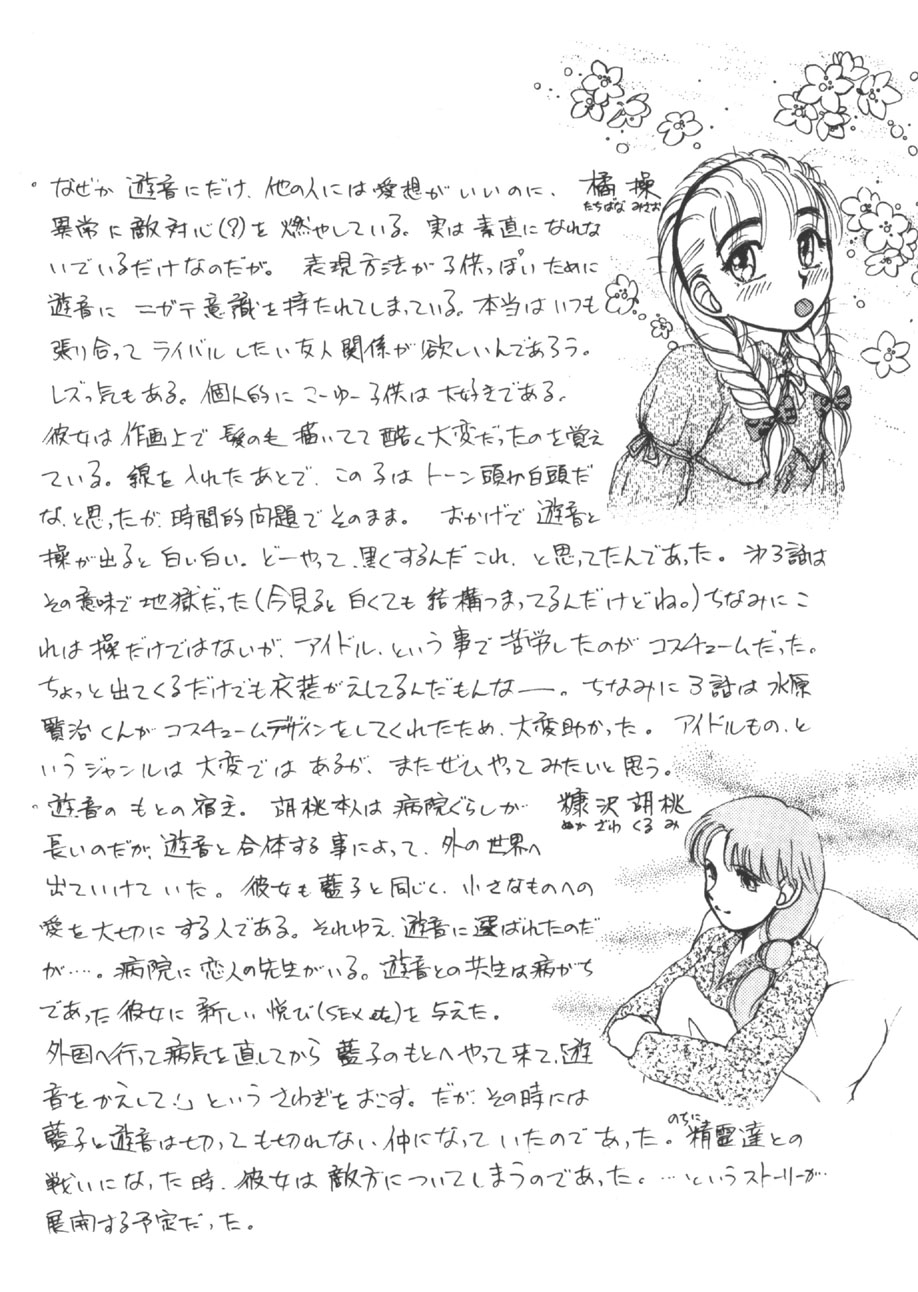 。なぜか 遊音にだけ、他の人には愛想がいいのに、
橘 操
たちばな みさお
異常に敵対心(?)を燃やしている。実は素直になれな
いでいるだけなのだが。 表現方法が子供っぽいために
遊音に ニガテ意識を持たれてしまっている。本当はいつも
張り合って ライバル したい友人関係が欲しいんであろう。
レズっ気もある。個人的に こーゆー子供は大好きである。
彼女は 作画上で 髪の毛 描いてて 酷く大変だったのを覚え
ている。線を入れたあとで、この子は トーン頭か白頭だ
な、と思ったが、時間的問題で そのまま。 おかげで 遊音と
操が出ると 白い白い。どーやって、黒くするんだ これ、と思ってたんであった。 第3話は
その意味で 地獄だった(今見ると 白くても 結構つまってるんだけどね。)ちなみに こ
れは操だけではないが、アイドル、という事で苦労したのが コスチュームだった。
ちょっと出てくるだけでも衣装がえしてるんだもんなー。ちなみに 3話は 水原
賢治くんが コスチュームデザインをしてくれたため、大変助かった。 アイドルもの、と
いうジャンルは 大変では あるが、またぜひやってみたいと思う。
。遊音の もとの宿主。 胡桃本人は 病院ぐらしが
糠沢胡桃
ぬか ざわ くる み
長いのだが、遊音と合体する事によって、外の世界へ
出ていけていた。彼女も藍子と同じく、小さなものへの
愛を大切に する人である。それゆえ、遊音に選ばれたのだ
が…。病院に恋人の先生がいる。遊音との共生は病がち
であった彼女に 新しい悦び(SEX etc)を与えた。
外国へ行って病気を直してから 藍子のもとへやって来て、「遊
音をかえして!」という さわぎをおこす。だが、その時には
藍子と遊音は切っても切れない、仲になっていたのであった。のちに精霊達との
戦いになった時、彼女は 敵方についてしまうのであった。…というストーリーが…
展開する予定だった。